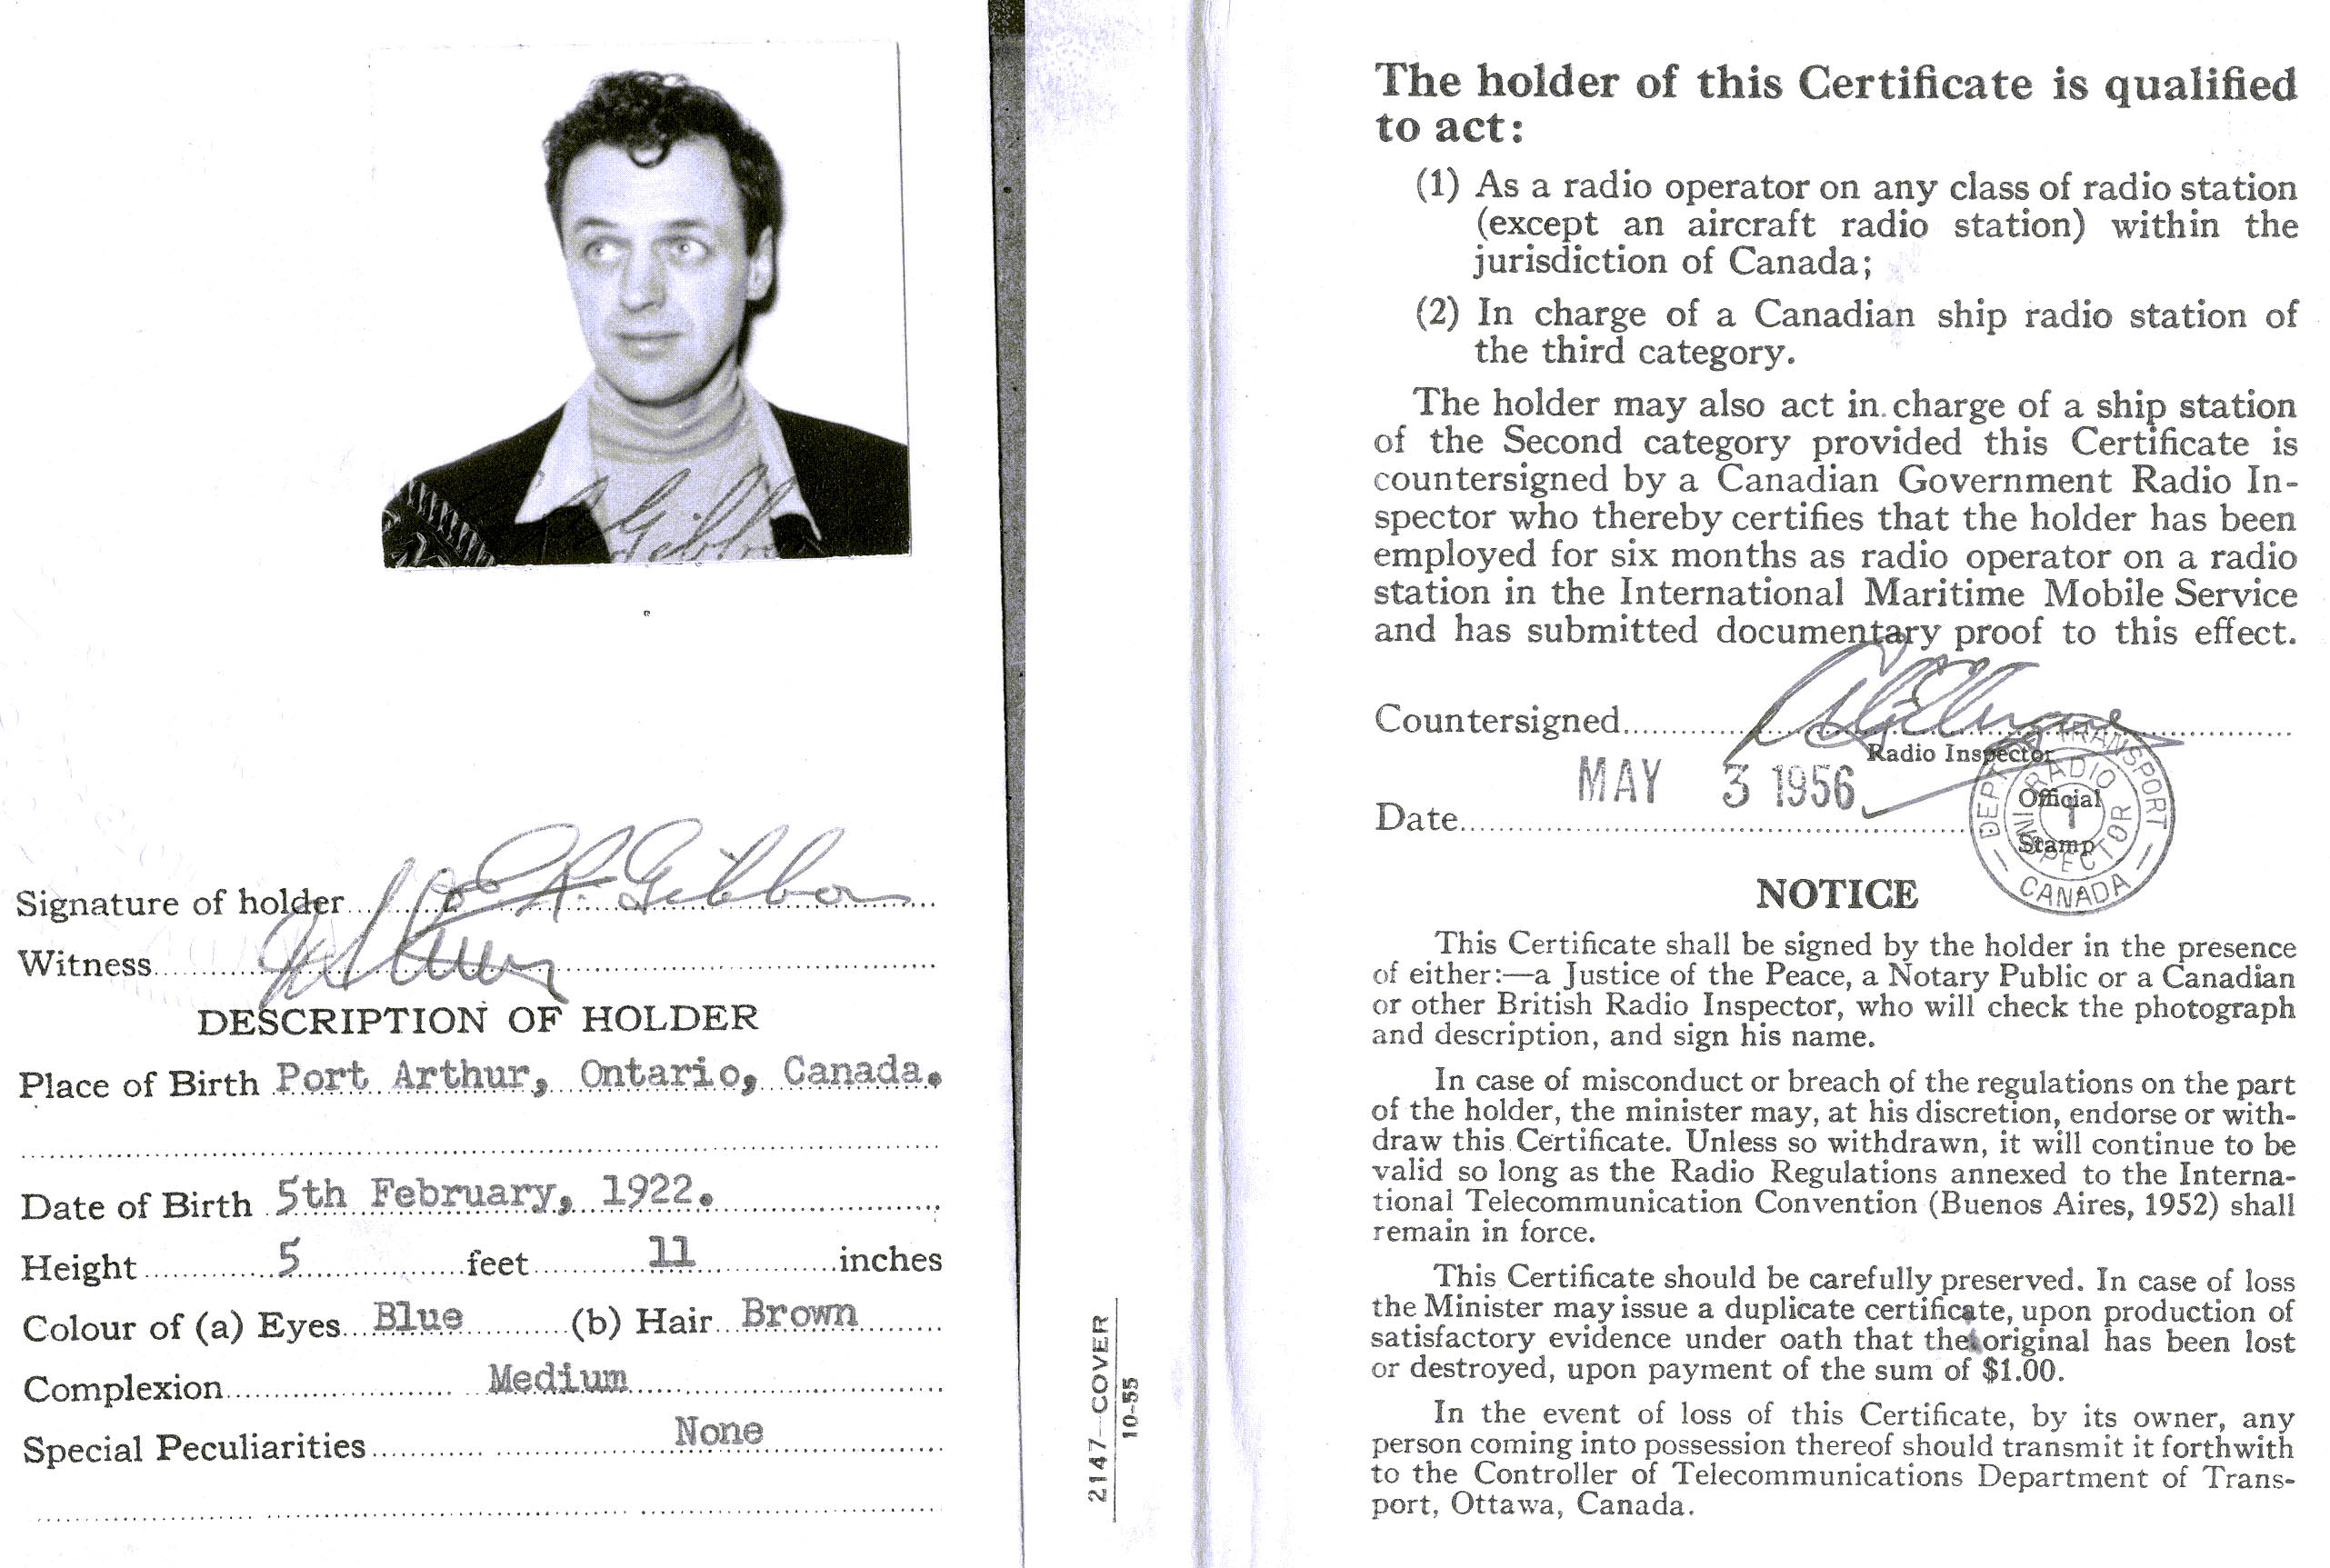 Gibbon
Signature of holder R. Gibbon
Witness
DESCRIPTION OF HOLDER
Place of Birth Port Arthur, Ontario, Canada.
Date of Birth 5th February, 1922.
Height 5 feet 11 inches
Colour of (a) Eyes Blue (b) Hair Brown
Complexion Medium
Special Peculiarities None
2147—COVER
10-55
The holder of this Certificate is qualified
to act:
(1) As a radio operator on any class of radio station
(except an aircraft radio station) within the
jurisdiction of Canada;
(2) In charge of a Canadian ship radio station of
the third category.
The holder may also act in charge of a ship station
of the Second category provided this Certificate is
countersigned by a Canadian Government Radio In-
spector who thereby certifies that the holder has been
employed for six months as radio operator on a radio
station in the International Maritime Mobile Service
and has submitted documentary proof to this effect.
Countersigned
Radio Inspector
Date MAY 3 1956
Official
Stamp
DEPT TRANSPORT
RADIO INSPECTOR
1
— CANADA —
NOTICE
This Certificate shall be signed by the holder in the presence
of either:—a Justice of the Peace, a Notary Public or a Canadian
or other British Radio Inspector, who will check the photograph
and description, and sign his name.
In case of misconduct or breach of the regulations on the part
of the holder, the minister may, at his discretion, endorse or with-
draw this Certificate. Unless so withdrawn, it will continue to be
valid so long as the Radio Regulations annexed to the Interna-
tional Telecommunication Convention (Buenos Aires, 1952) shall
remain in force.
This Certificate should be carefully preserved. In case of loss
the Minister may issue a duplicate certificate, upon production of
satisfactory evidence under oath that the original has been lost
or destroyed, upon payment of the sum of $1.00.
In the event of loss of this Certificate, by its owner, any
person coming into possession thereof should transmit it forthwith
to the Controller of Telecommunications Department of Trans-
port, Ottawa, Canada.